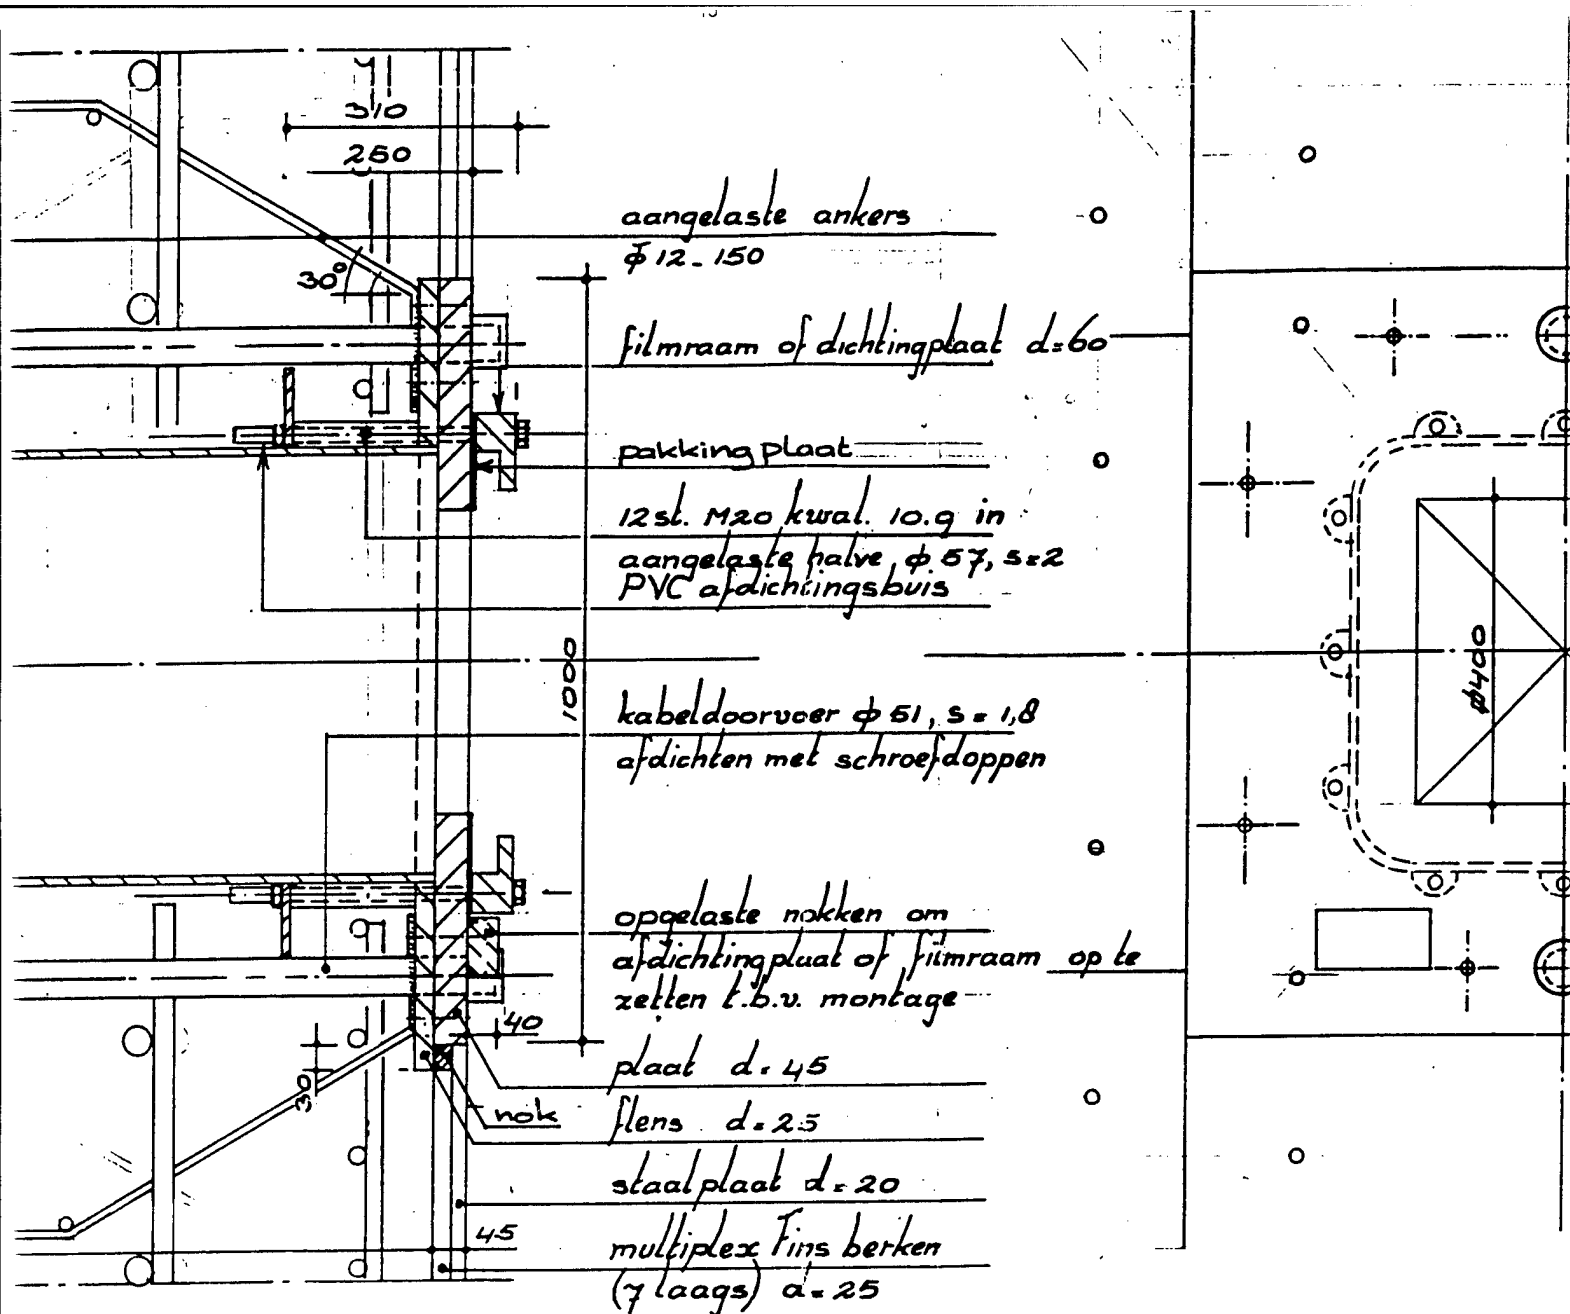 310
250
aangelaste ankers
ϕ 12 - 150
30°
filmraam of dichtingplaat d=60
pakking plaat
12 st. M20 kwal. 10.9 in
aangelaste halve ϕ 57, s=2
PVC afdichtingsbuis
1000
ϕ400
kabeldoorvoer ϕ 51, s = 1,8
afdichten met schroefdoppen
opgelaste nokken om
afdichtingplaat of filmraam op te
zetten t.b.v. montage
40
plaat d = 45
30
nok
flens d = 25
staalplaat d = 20
45
multiplex Fins berken
(7 laags) d = 25